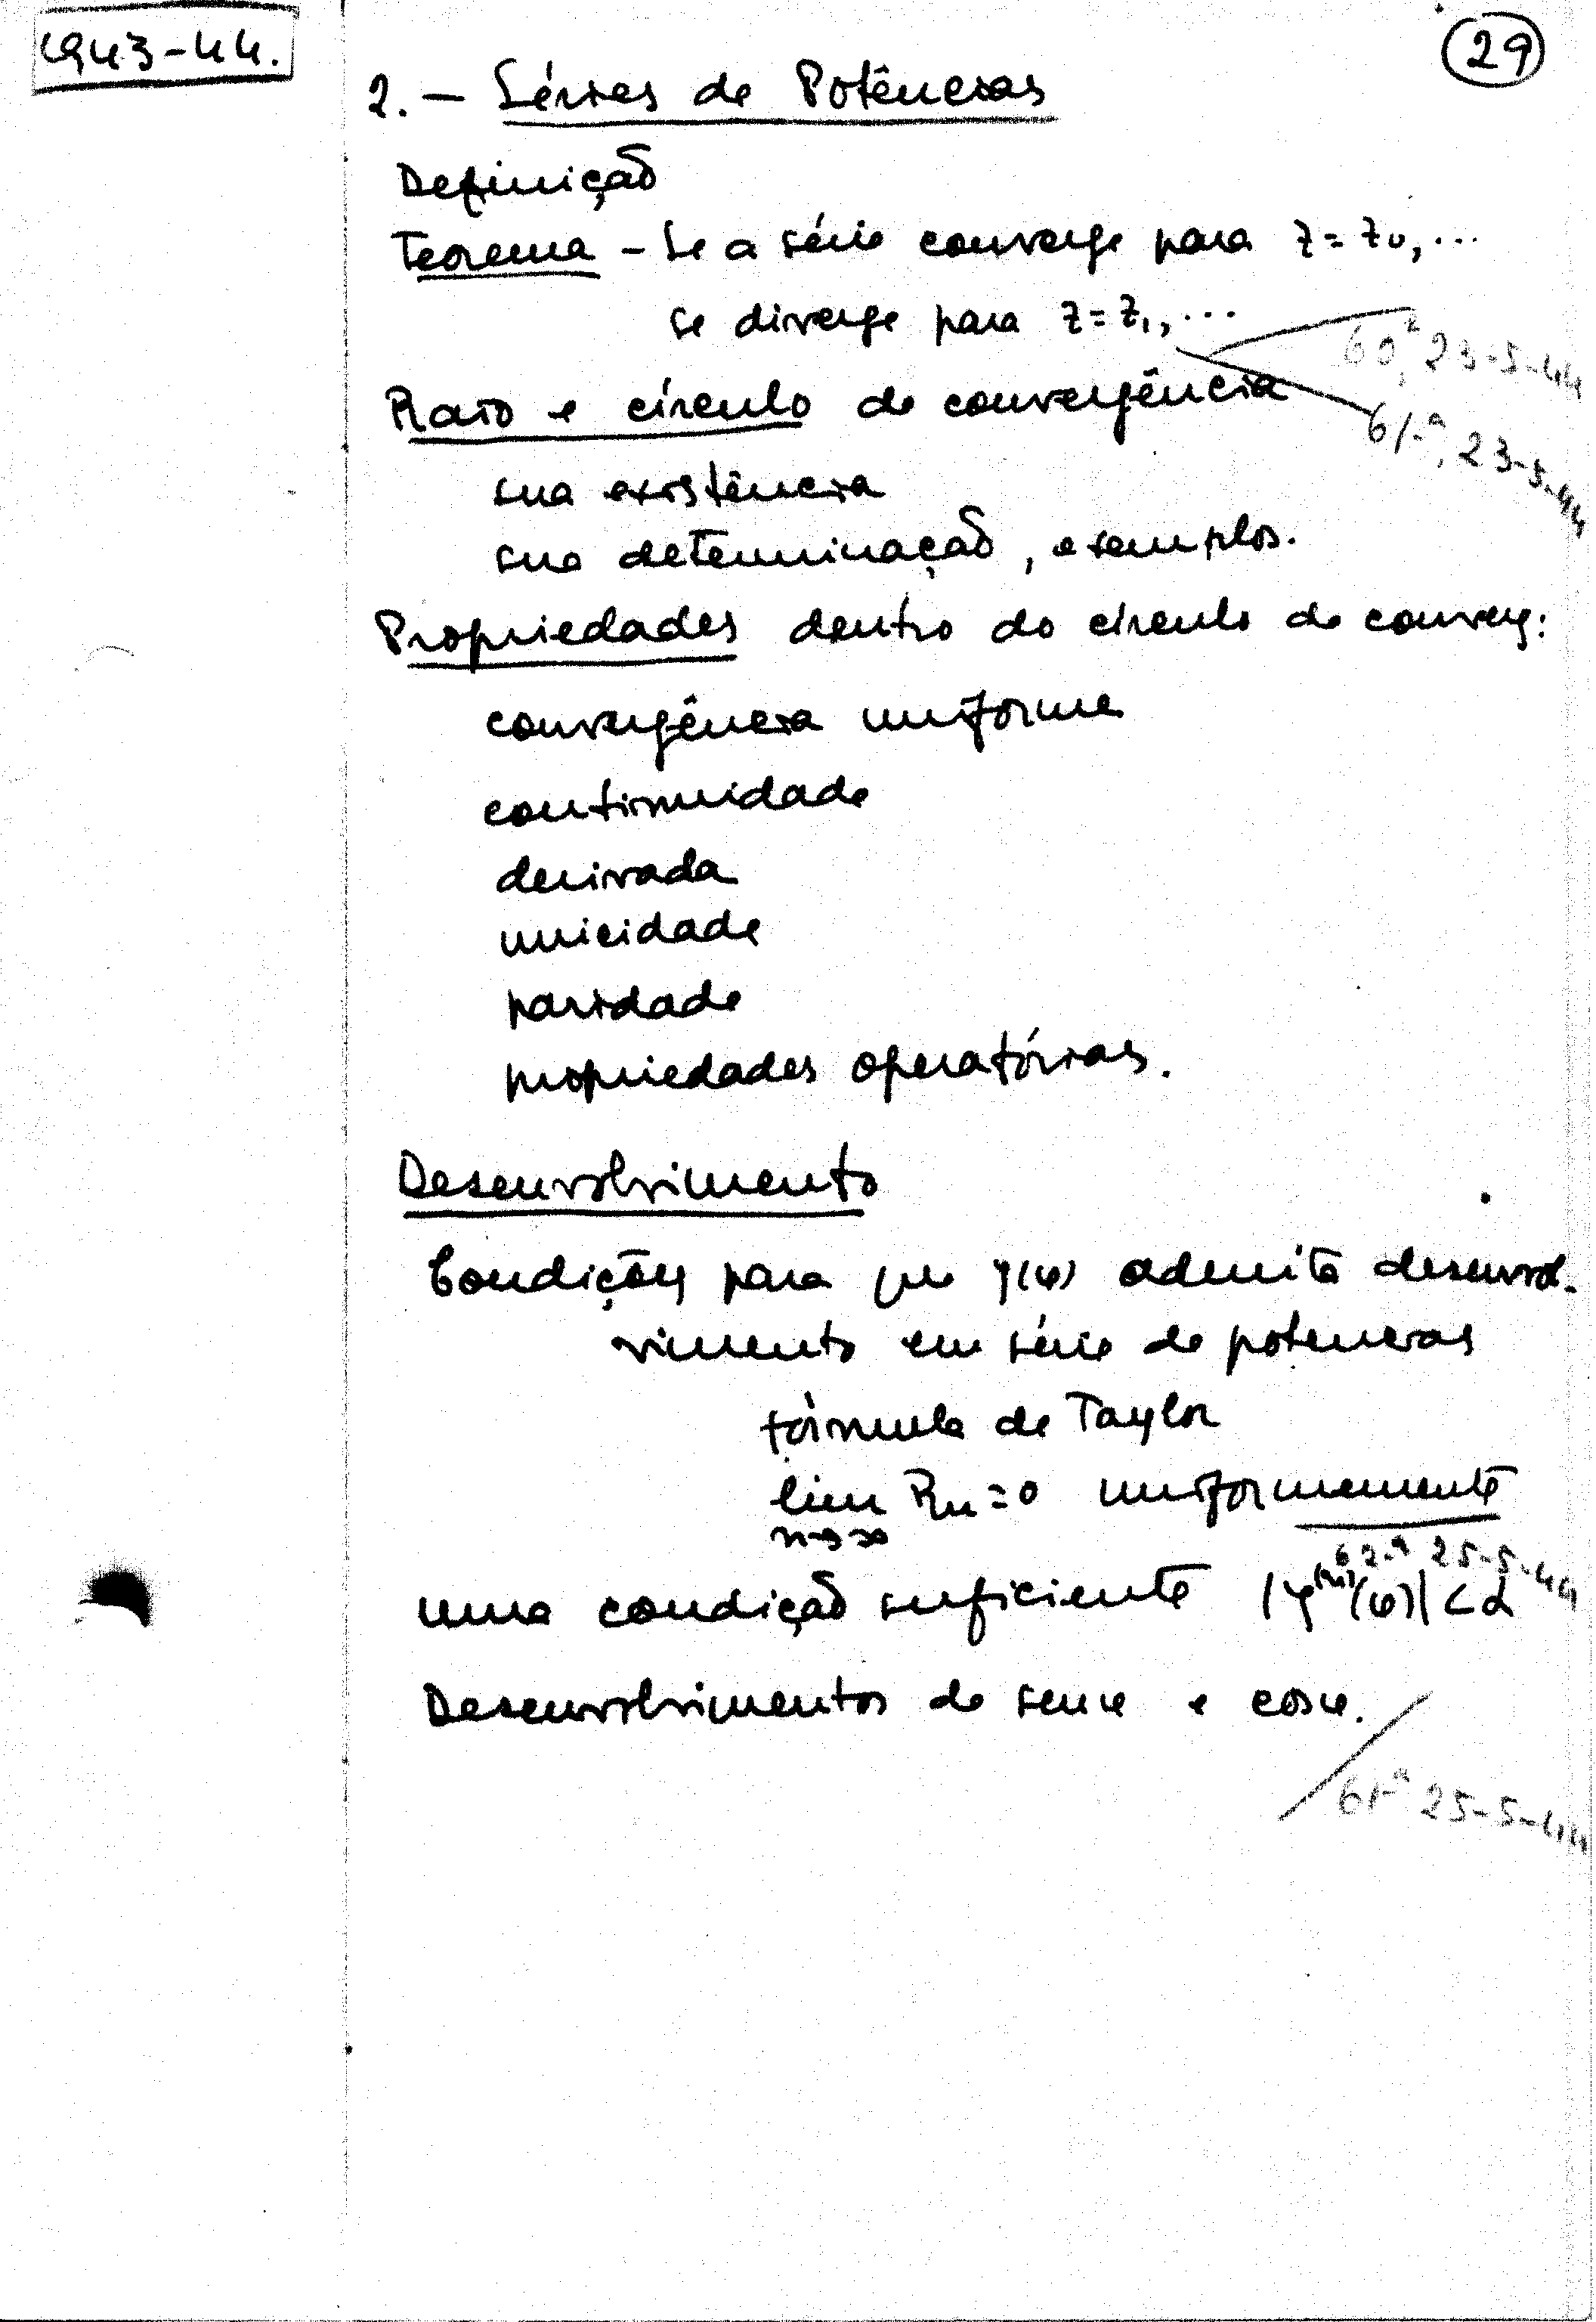 1943-44.
29
2. — Séries de Potências
Definição
Teorema - Se a série converge para z = z0, ...
se diverge para z = z1, ...
60ª, 23-5-44
Raio e círculo de convergência
61.ª, 23-5-44
sua existência
sua determinação, exemplos.
Propriedades dentro do círculo de converg:
convergência uniforme
continuidade
derivada
unicidade
paridade
propriedades operatórias.
Desenvolvimento
Condições para que φ(u) admita desenvol-
vimento em série de potencias
fórmula de Taylor
lim Rn = 0 uniformemente
n→∞
62.ª 25-5-44
uma condição suficiente |φ⁽ⁿ⁾(u)| < α
Desenvolvimentos de sen u e cos u.
25-5-44